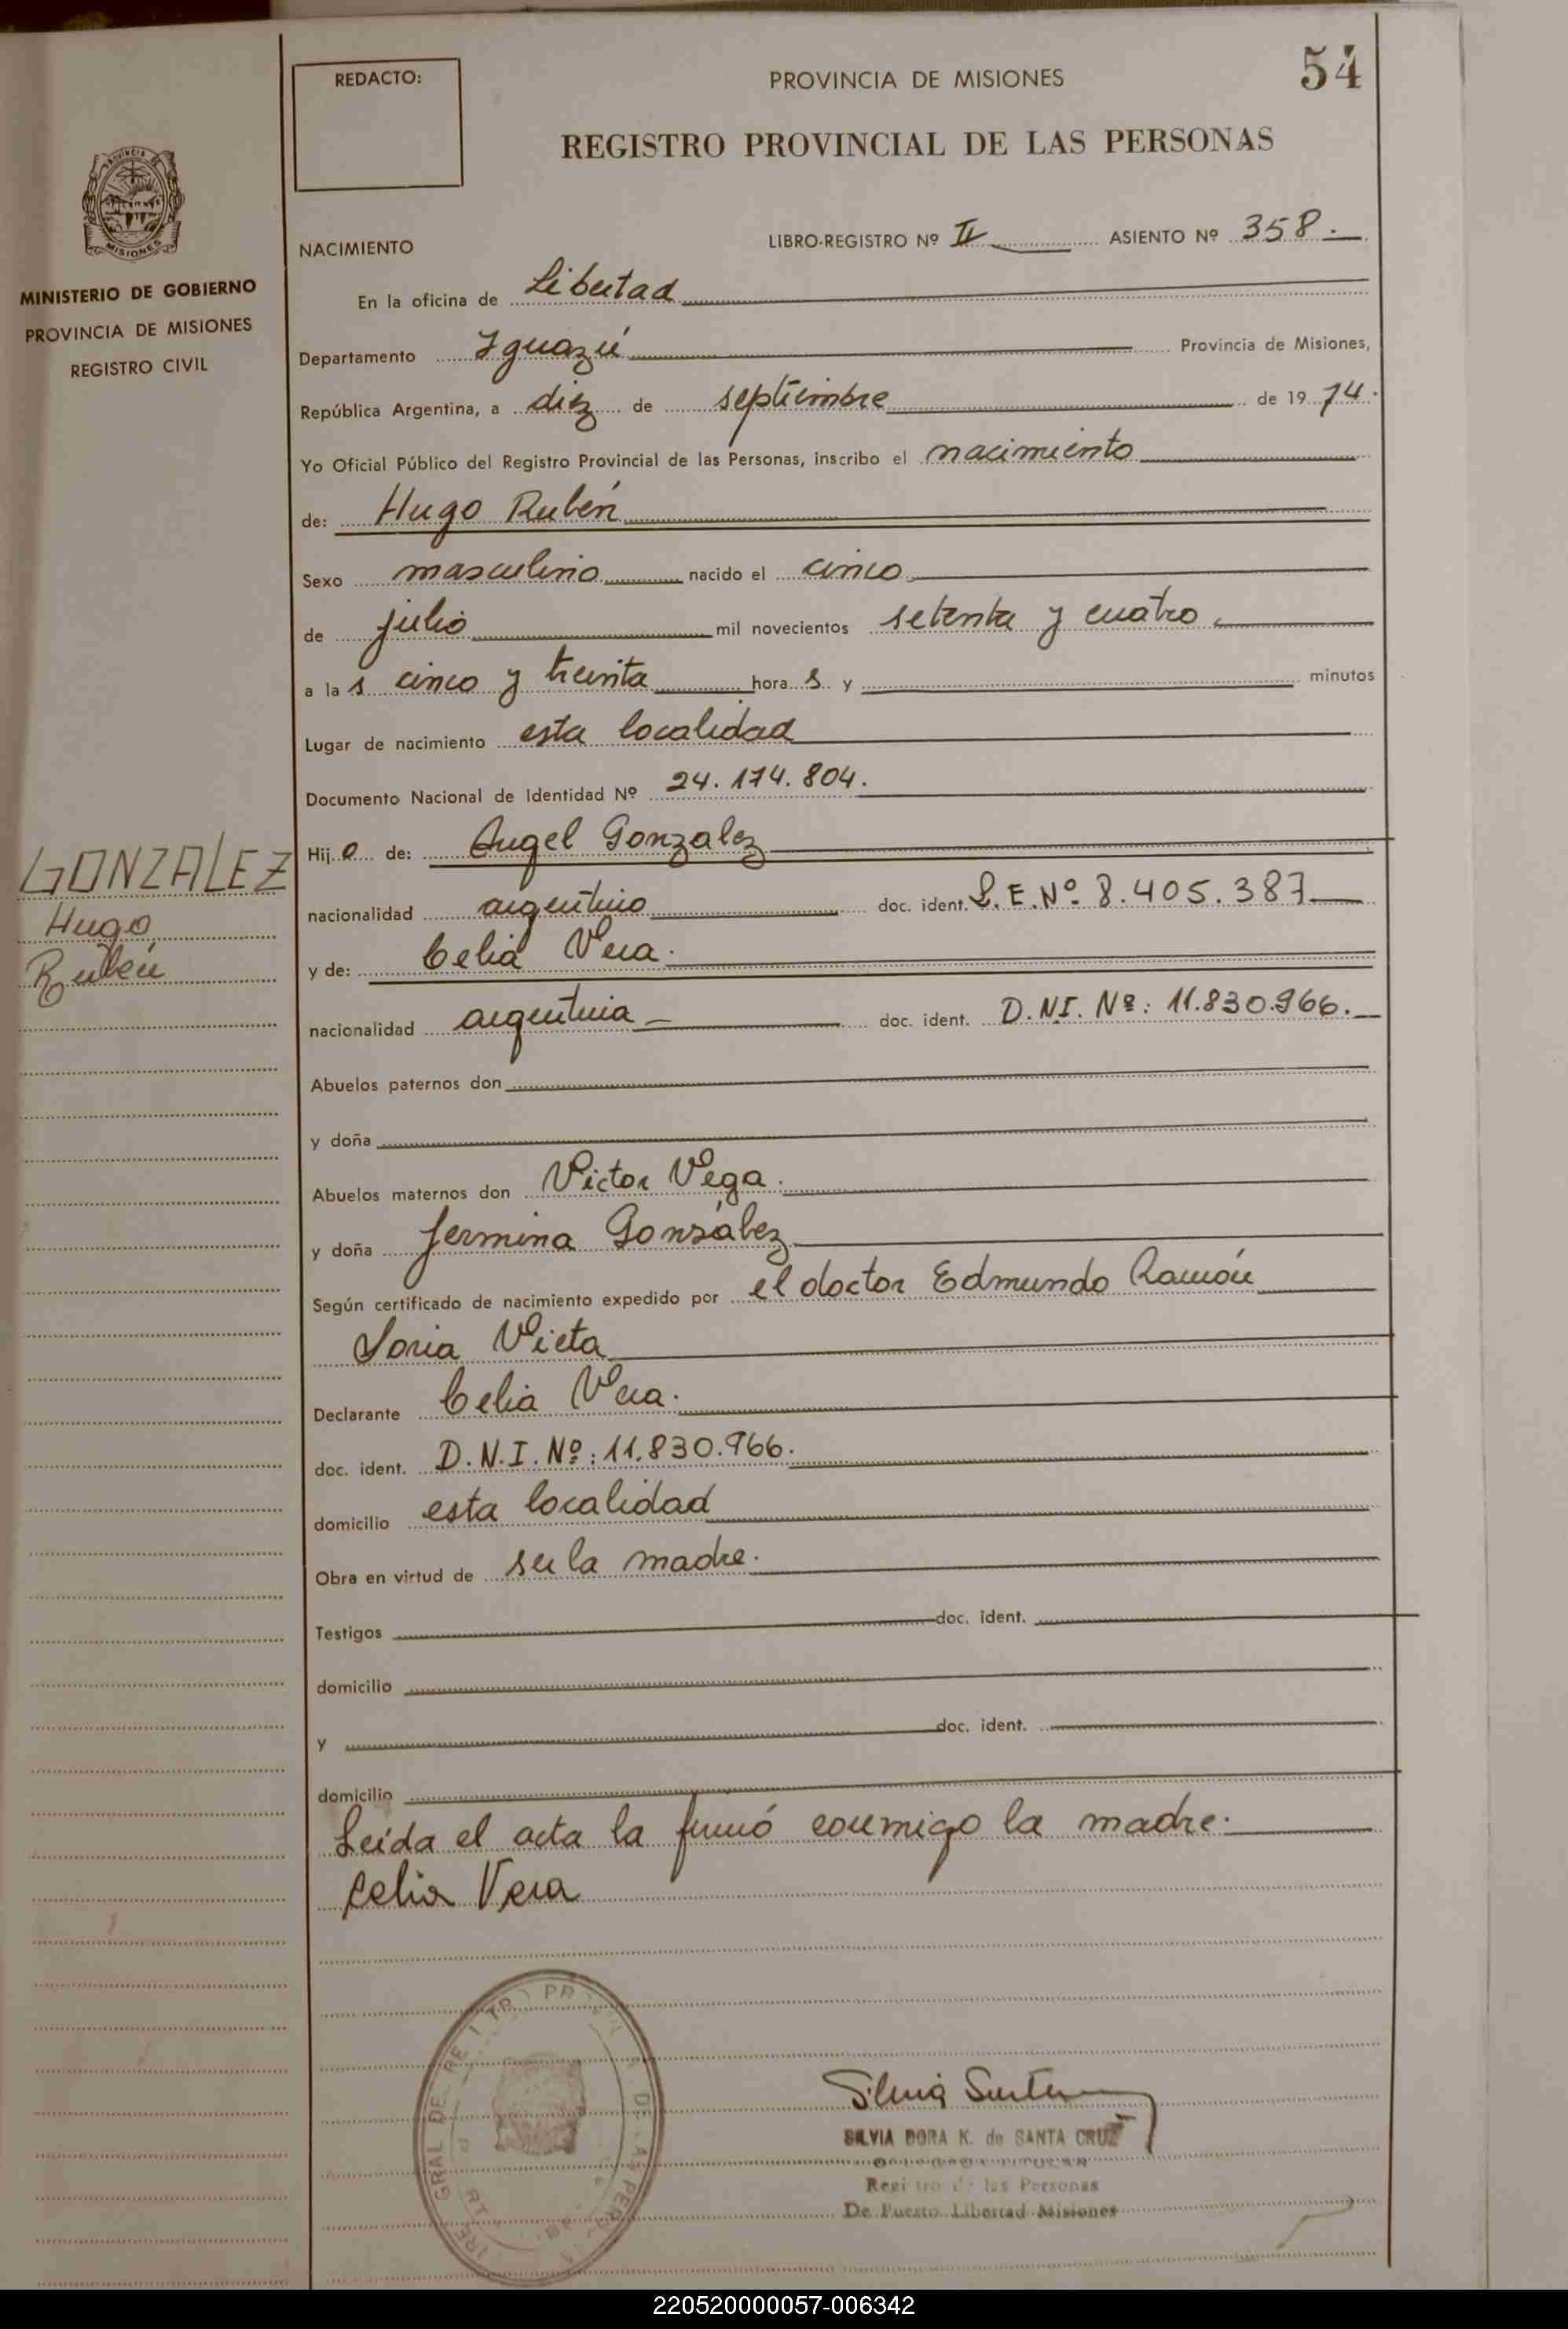 REDACTO:
PROVINCIA DE MISIONES
54
REGISTRO PROVINCIAL DE LAS PERSONAS
PROVINCIA DE
MISIONES
MINISTERIO DE GOBIERNO
PROVINCIA DE MISIONES
REGISTRO CIVIL
NACIMIENTO
LIBRO-REGISTRO Nº II ASIENTO Nº 358.
En la oficina de Libertad
Departamento Iguazú Provincia de Misiones,
República Argentina, a diez de septiembre de 1974.
Yo Oficial Público del Registro Provincial de las Personas, inscribo el nacimiento
de: Hugo Rubén
Sexo masculino nacido el cinco
de julio mil novecientos setenta y cuatro
a las cinco y treinta horas y minutos
Lugar de nacimiento esta localidad
Documento Nacional de Identidad Nº 24.174.804.
Hijo de: Angel Gonzalez
GONZALEZ
Hugo
Rubén
nacionalidad argentino doc. ident. L.E.Nº 8.405.387
y de: Celia Vera.
nacionalidad argentina doc. ident. D.NI. Nº: 11.830.966.
Abuelos paternos don
y doña
Abuelos maternos don Victor Vega.
y doña Jermina Gonsalez
Según certificado de nacimiento expedido por el doctor Edmundo Ramón
Soria Vieta
Declarante Celia Vera.
doc. ident. D.N.I.Nº:11.830.966.
domicilio esta localidad
Obra en virtud de ser la madre.
Testigos doc. ident.
domicilio
y doc. ident.
domicilio
Leída el acta la firmó conmigo la madre.
Celia Vera
SILVIA DORA K. de SANTA CRUZ
Registro de las Personas
De Puerto Libertad Misiones
220520000057-006342